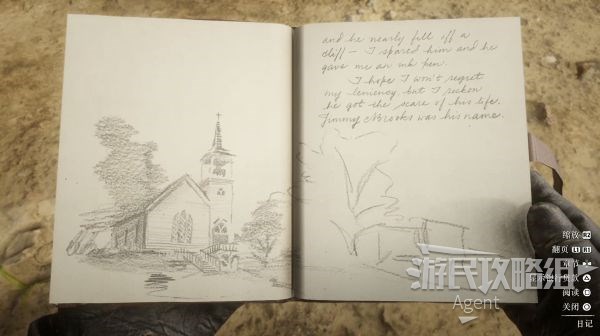 and he nearly fell off a
cliff – I spared him and he
gave me an ink pen.
I hope I won't regret
my leniency but I reckon
he got the scare of his life.
Jimmy Brooks was his name.
缩放 R2
翻页 L1 R1
阅读
关闭
日记
游民攻略组
Agent